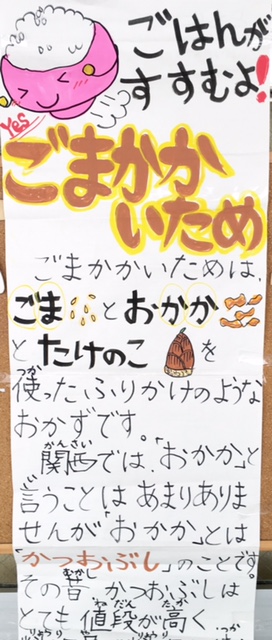 ごはんが
すすむよ!
Yes
ごまかか
いため
ごまかかいためは、
ごまとおかか
とたけのこを
使ったふりかけのような
おかずです。
関西では、「おかか」と
言うことはあまりありま
せんが「おかか」とは
「かつおぶし」のことです。
その昔、かつおぶしは
とても値段が高く、